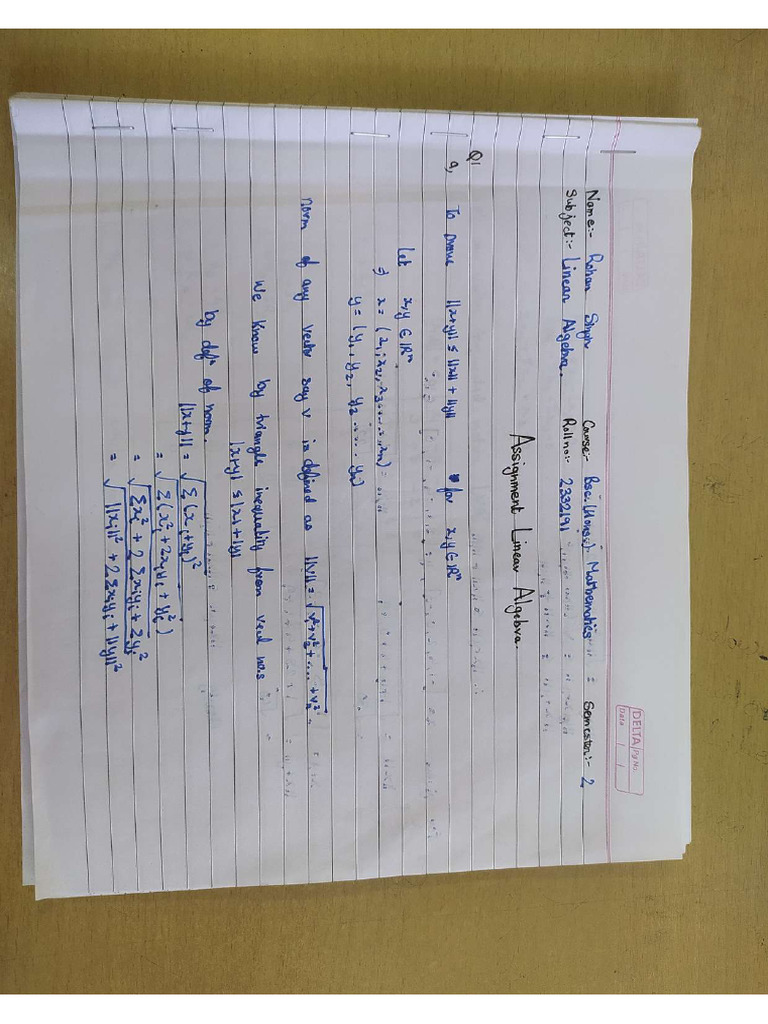 DELTA Pg No.
Date / /
Name:- Rohan Singh Course:- Bsc.(Hons.) Mathematics Semester:- 2
Subject:- Linear Algebra. Roll no:- 2332191
Assignment Linear Algebra.
Q1
a, To prove ||x+y|| ≤ ||x|| + ||y|| for x,y ∈ ℝⁿ
Let x,y ∈ ℝⁿ
⇒ x = (x₁, x₂, x₃ ..... xₙ)
y = (y₁, y₂, y₃ ..... yₙ)
norm of any vector say v is defined as ||v|| = √(v₁²+v₂²+ .... +vₙ²)
We know by triangle inequality from real no.s
|x+y| ≤ |x| + |y|
by defⁿ of norm.
||x+y|| = √(Σ(xᵢ+yᵢ)²)
= √(Σ(xᵢ²+2xᵢyᵢ+yᵢ²))
= √(Σxᵢ² + 2Σxᵢyᵢ + Σyᵢ²)
= √(||x||² + 2Σxᵢyᵢ + ||y||²)